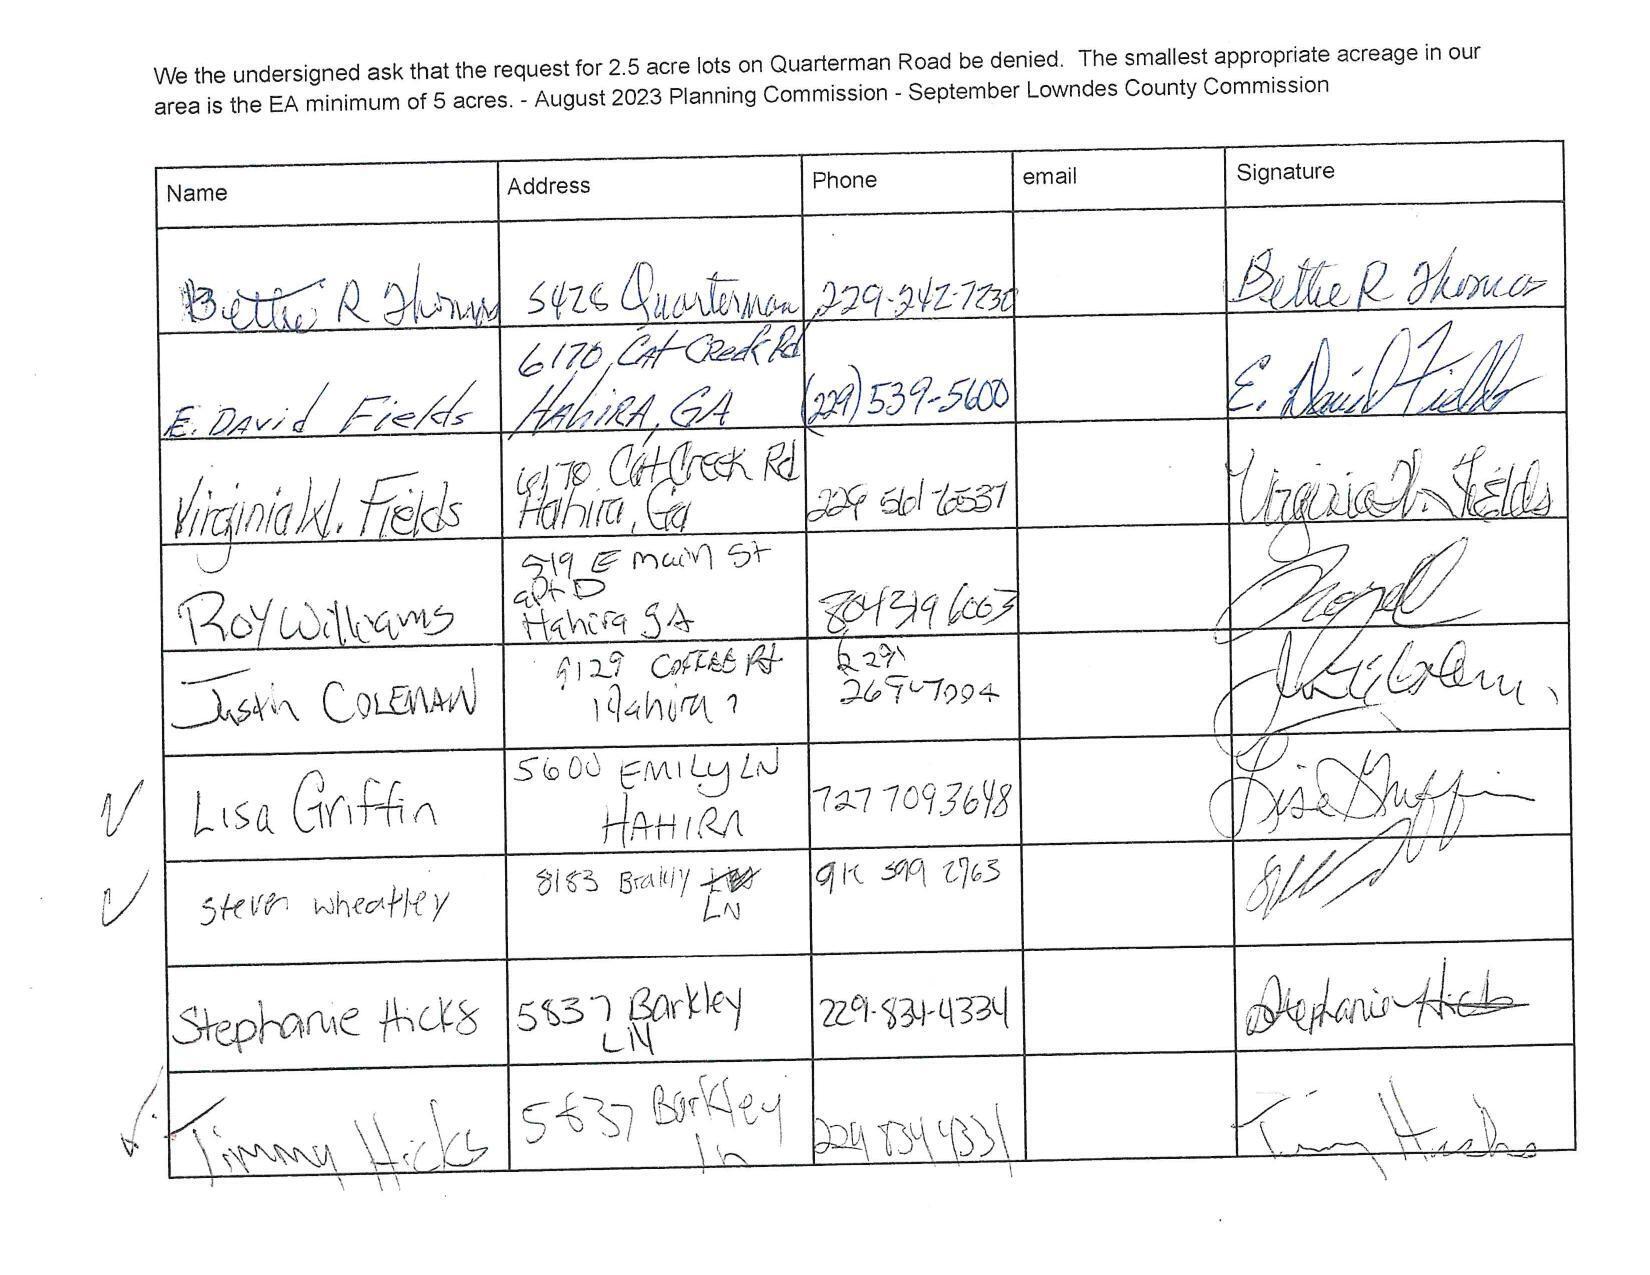 We the undersigned ask that the request for 2.5 acre lots on Quarterman Road be denied. The smallest appropriate acreage in our
area is the EA minimum of 5 acres. - August 2023 Planning Commission - September Lowndes County Commission
Name Address Phone email Signature
Bettie R Thomas 5428 Quarterman 229-242-7230 Bettie R Thomas
6170 Cat Creek Rd
E. David Fields HAHIRA, GA (229) 539-5600 E. David Fields
6170 Cat Creek Rd
Virginia W. Fields Hahira, Ga 229 561 6537 Virginia W. Fields
519 E main St
apt D
Roy Williams Hahira gA 804 319 6063
9129 COFFEE Rd 229
Justin COLEMAN Hahira 269-7004
5600 EMILY LN
Lisa Griffin HAHIRA 727 709 3648 Lisa Griffin
Steven wheatley 8183 LN 599 2763
Stephanie Hicks 5837 Barkley 229-834-4334 Stephanie Hicks
LN
Timmy Hicks 5837 Barkley 229 834 4331 Timmy Hicks
Ln